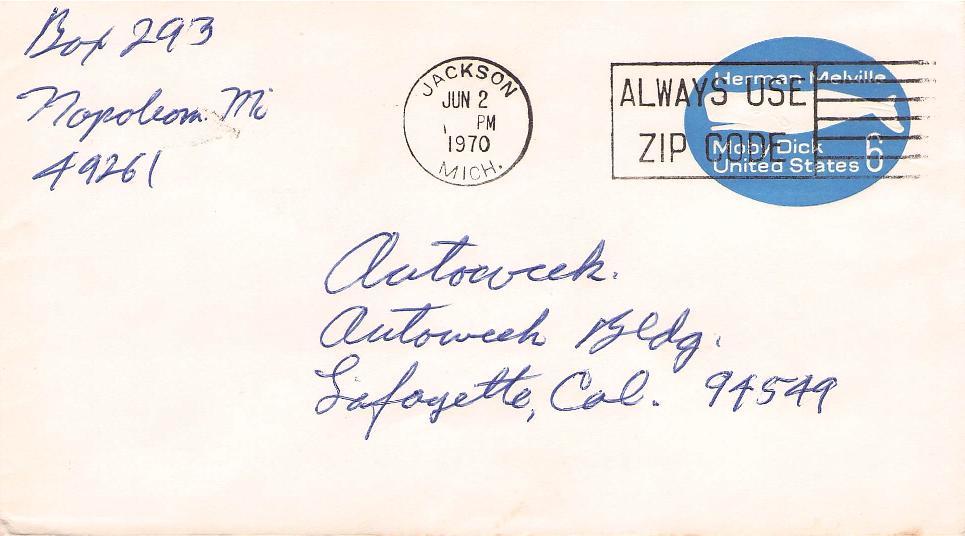 Box 293
Napoleon Mi
49261
JACKSON
JUN 2
PM
1970
MICH.
ALWAYS USE
ZIP CODE
Herman Melville
Moby Dick
United States 6
Autoweek.
Autoweek Bldg.
Lafayette, Cal. 94549